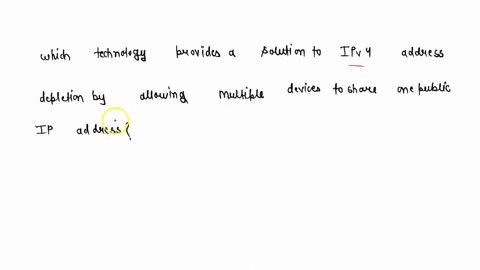 which technology provides a solution to IPv4 address
depletion by allowing multiple devices to share one public
IP address?